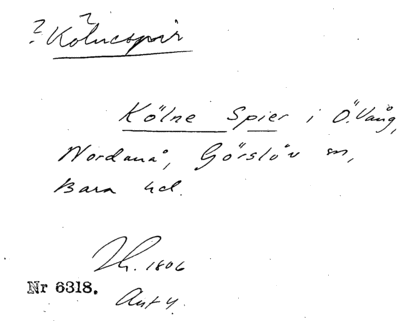 ? ?
Kölnespir
Kölne Spier i Ö. Vång,
Nordanå, Görslöv sn,
Bara hd.
1806
Nr 6318.